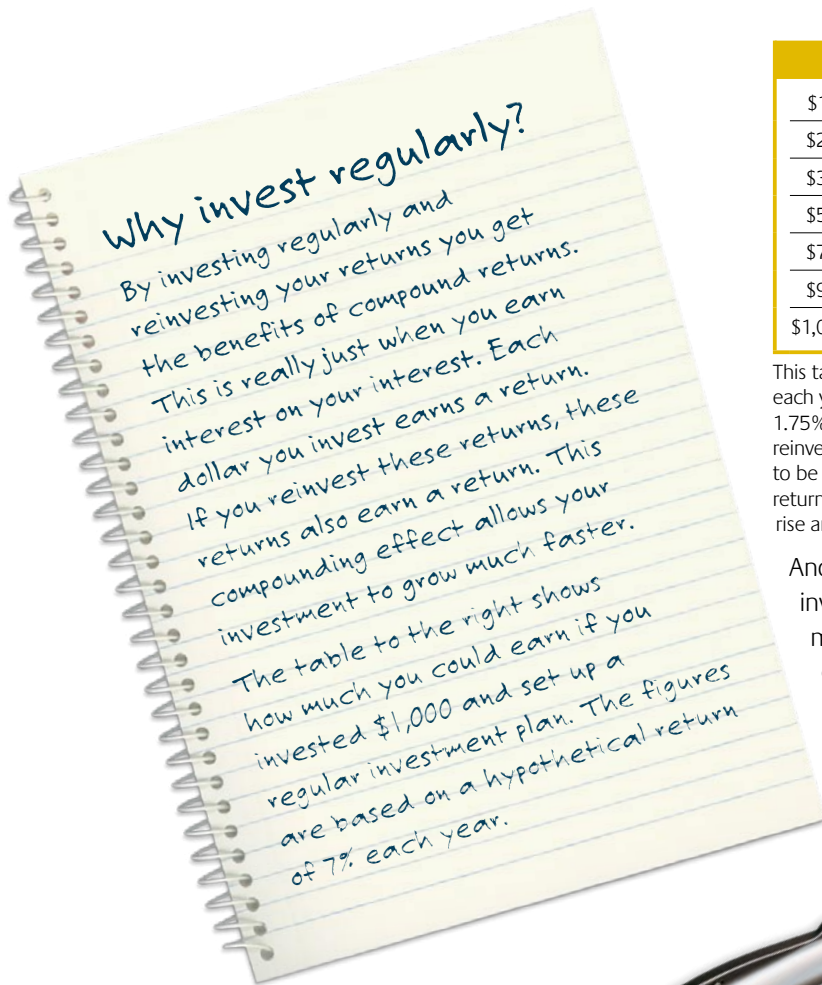 Why invest regularly?
By investing regularly and
reinvesting your returns you get
the benefits of compound returns.
This is really just when you earn
interest on your interest. Each
dollar you invest earns a return.
If you reinvest these returns, these
returns also earn a return. This
compounding effect allows your
investment to grow much faster.
The table to the right shows
how much you could earn if you
invested $1,000 and set up a
regular investment plan. The figures
are based on a hypothetical return
of 7% each year.
This
each
1.75%
to be
rise
And